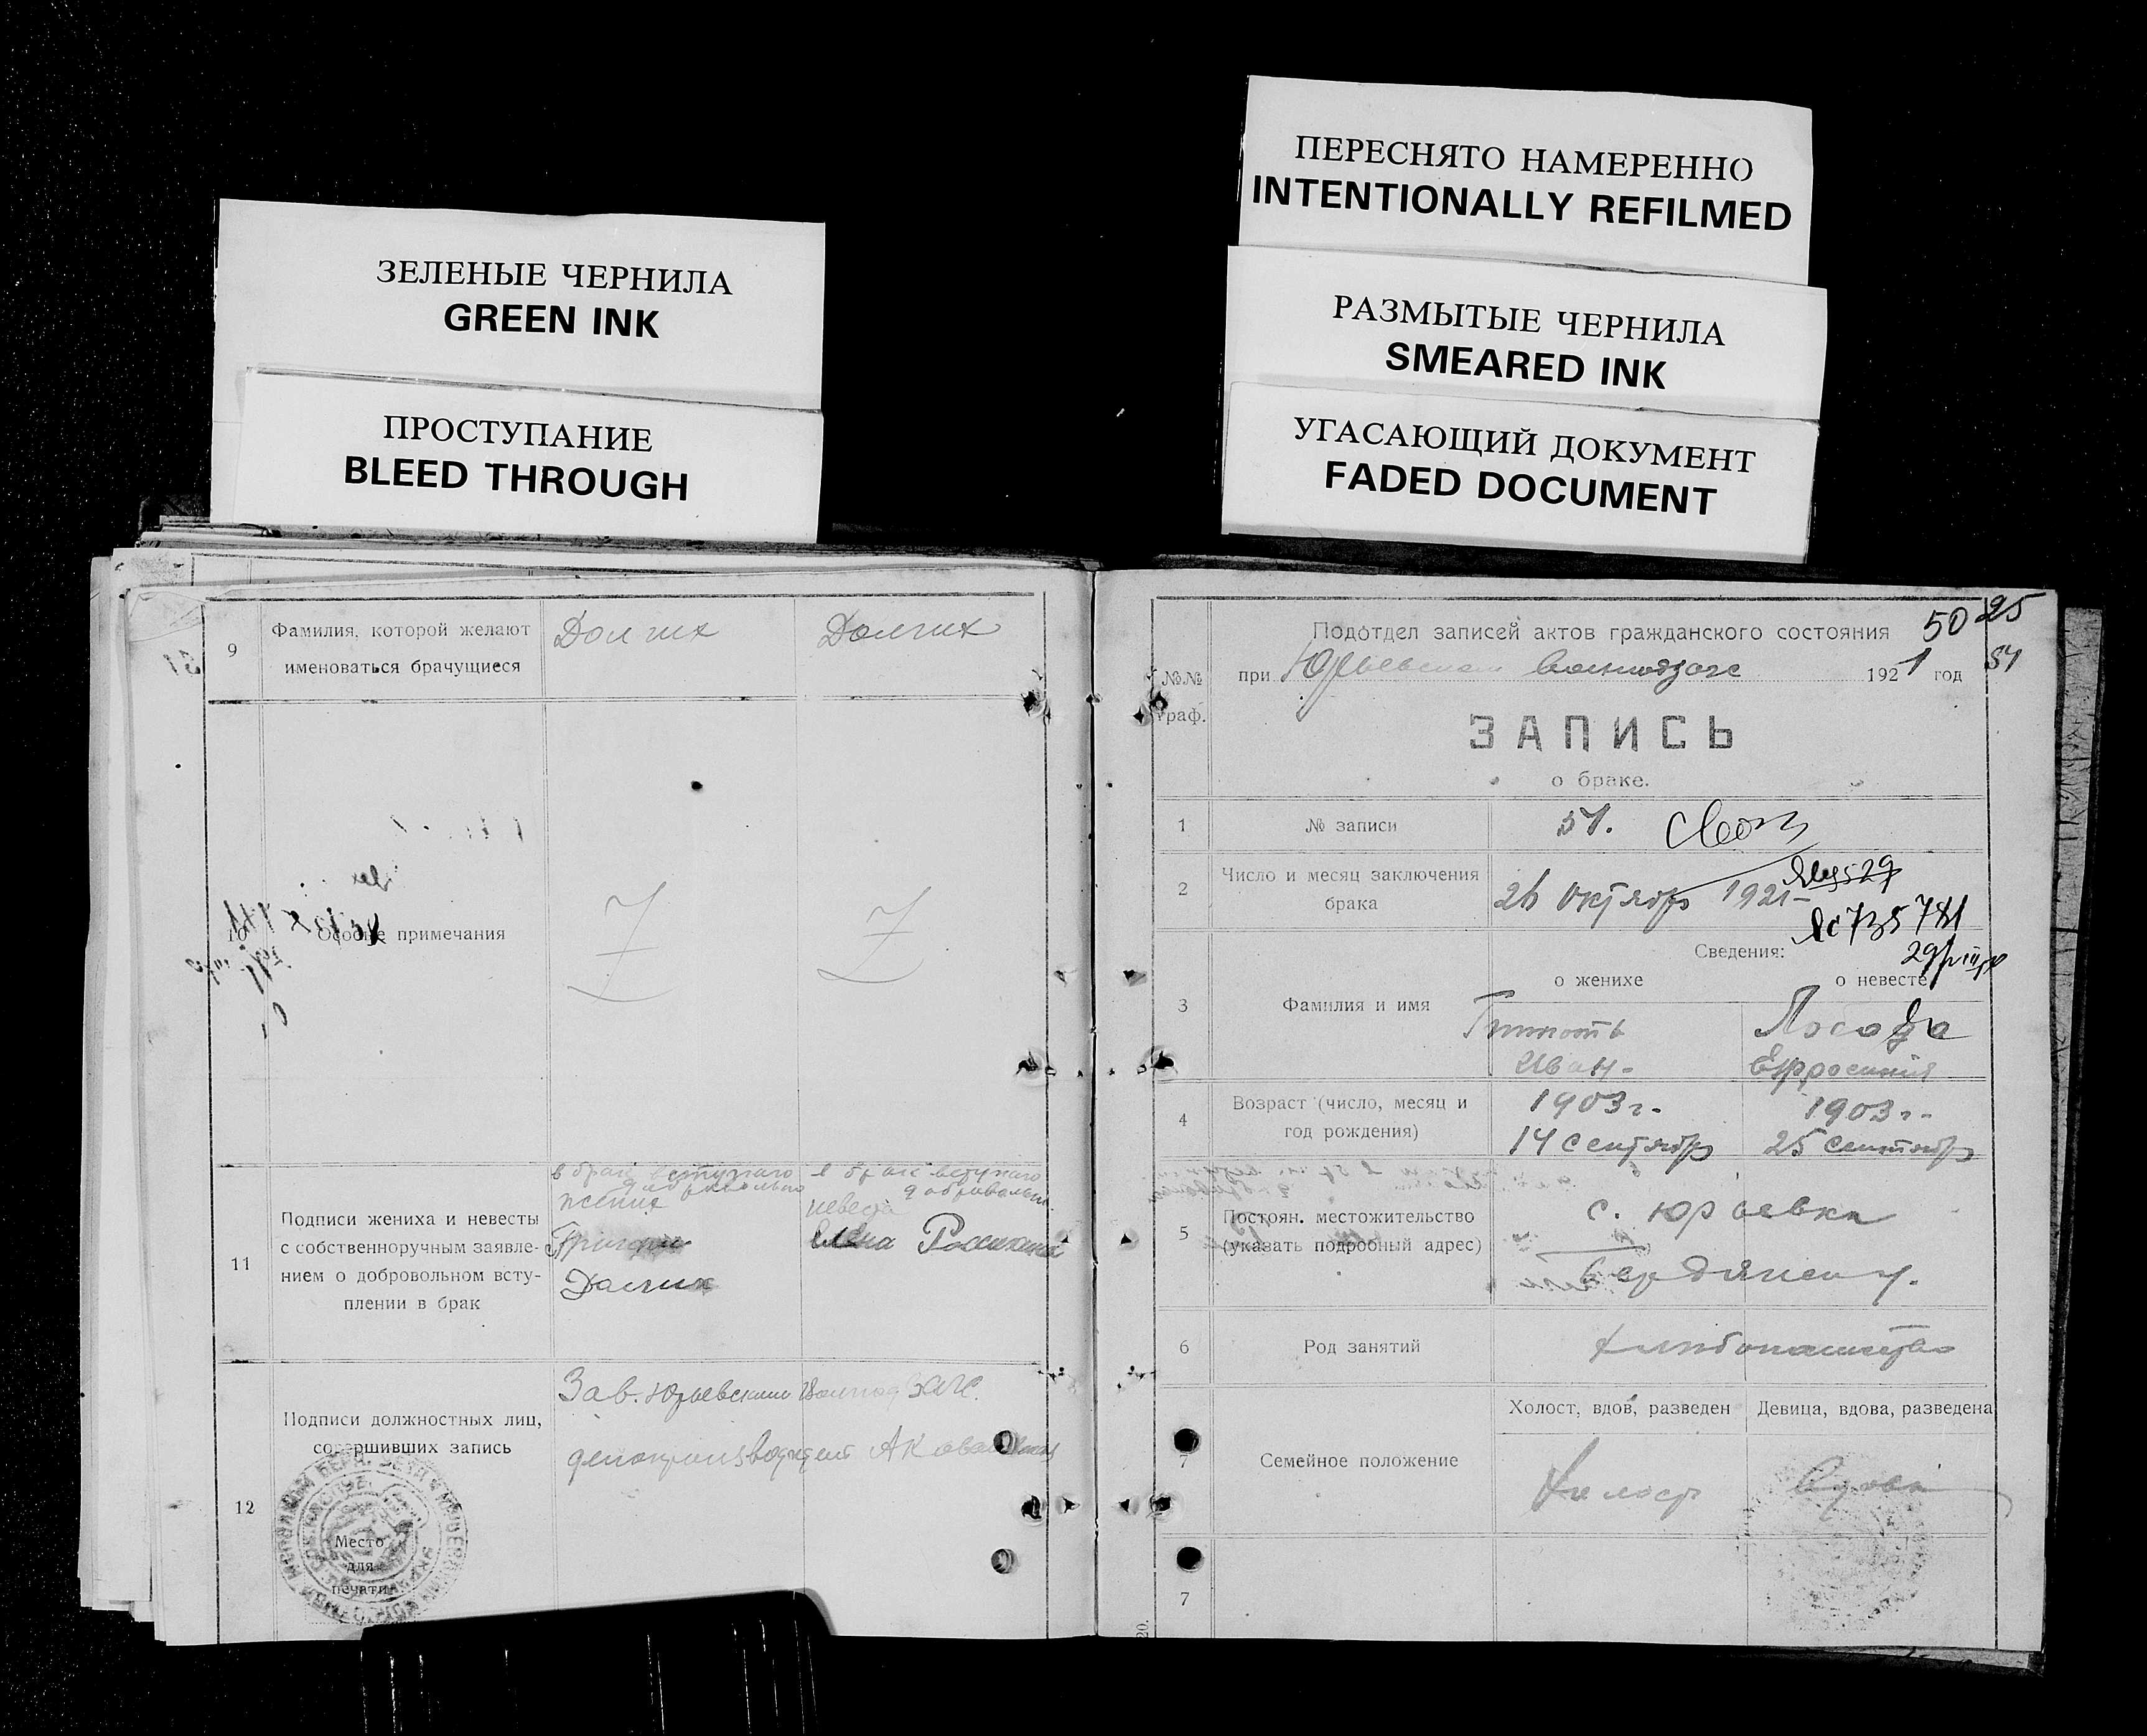 ЗЕЛЕНЫЕ ЧЕРНИЛА
GREEN INK
ПРОСТУПАНИЕ
BLEED THROUGH
ПЕРЕСНЯТО НАМЕРЕННО
INTENTIONALLY REFILMED
РАЗМЫТЫЕ ЧЕРНИЛА
SMEARED INK
УГАСАЮЩИЙ ДОКУМЕНТ
FADED DOCUMENT
9
Фамилия, которой желают
именоваться брачущиеся
Долгих
Долгих
10
Особые примечания
11
Подписи жениха и невесты
с собственноручным заявле-
нием о добровольном всту-
плении в брак
в брак вступаю
добровольно
жених
Григорий
Долгих
в брак вступаю
добровольно
невеста
Елена
12
Подписи должностных лиц,
совершивших запись
Место
для
печати
Зав. Юрьевским ЗАГС.
делопроизводитель
50
25
51
№№
граф.
Подотдел записей актов гражданского состояния
при Юрьевском 1921 год
ЗАПИСЬ
о браке.
1
№ записи
51.
2
Число и месяц заключения
брака
26 Октября 1921
735781
3
Фамилия и имя
Сведения:
о женихе
о невесте
Иван
Лосода
Ефросиния
4
Возраст (число, месяц и
год рождения)
1903 г.
14 сентября
1903 г.
25 сентября
5
Постоян. местожительство
(указать подробный адрес)
с. Юрьевка
Бердянск у.
6
Род занятий
хлебопашество
7
Семейное положение
Холост, вдов, разведен
Девица, вдова, разведена
Холост
Вдова
7
20.